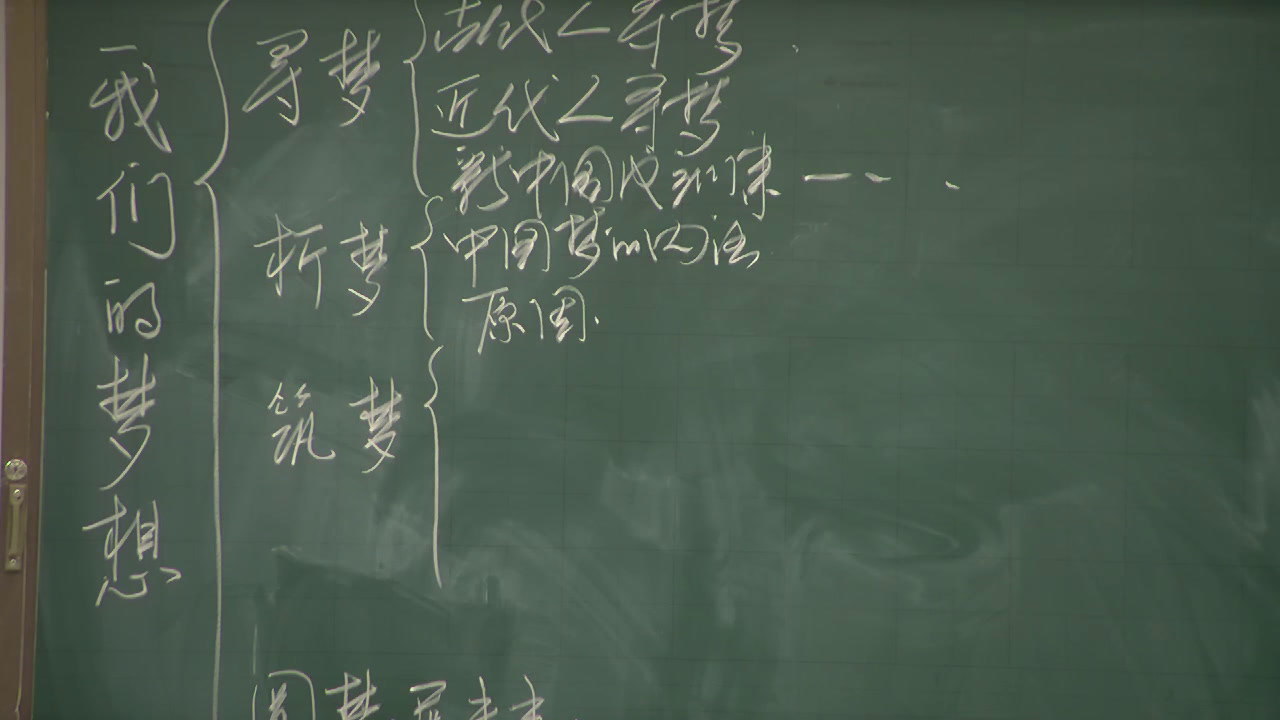 我们的梦想
寻梦
古代人寻梦
近代人寻梦
新中国成立以来——
析梦
中国梦的内涵
原因
筑梦
圆梦